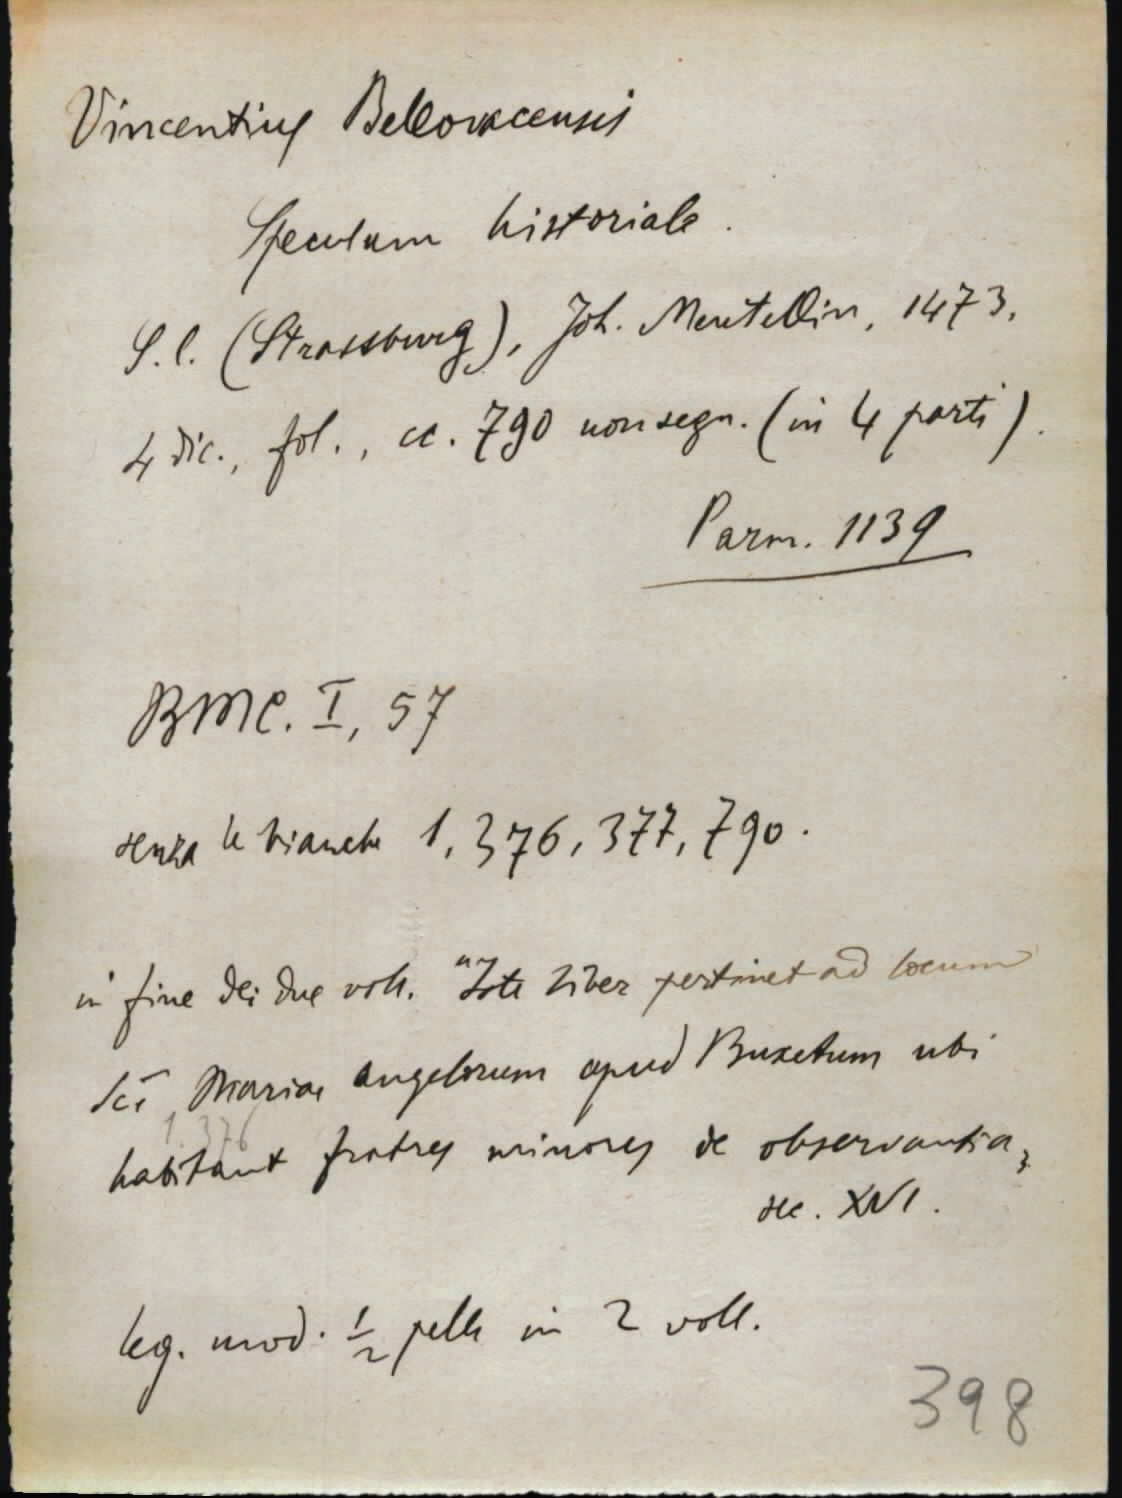 Vincentius Bellovacensis
Speculum historiale.
S.l. (Strassburg), Joh. Mentellin, 1473.
4 dic., fol., cc. 790 non segn. (in 4 parti).
Parm. 1139
BMC. I, 57
senza le bianche 1, 376, 377, 790.
in fine dei due voll. "Iste liber pertinet ad locum
Sce Mariae angelorum apud Buxetum ubi
1.376
habitant fratres minores de observantia,
sec. XVI.
leg. mod. 1/2 pelle in 2 voll.
398